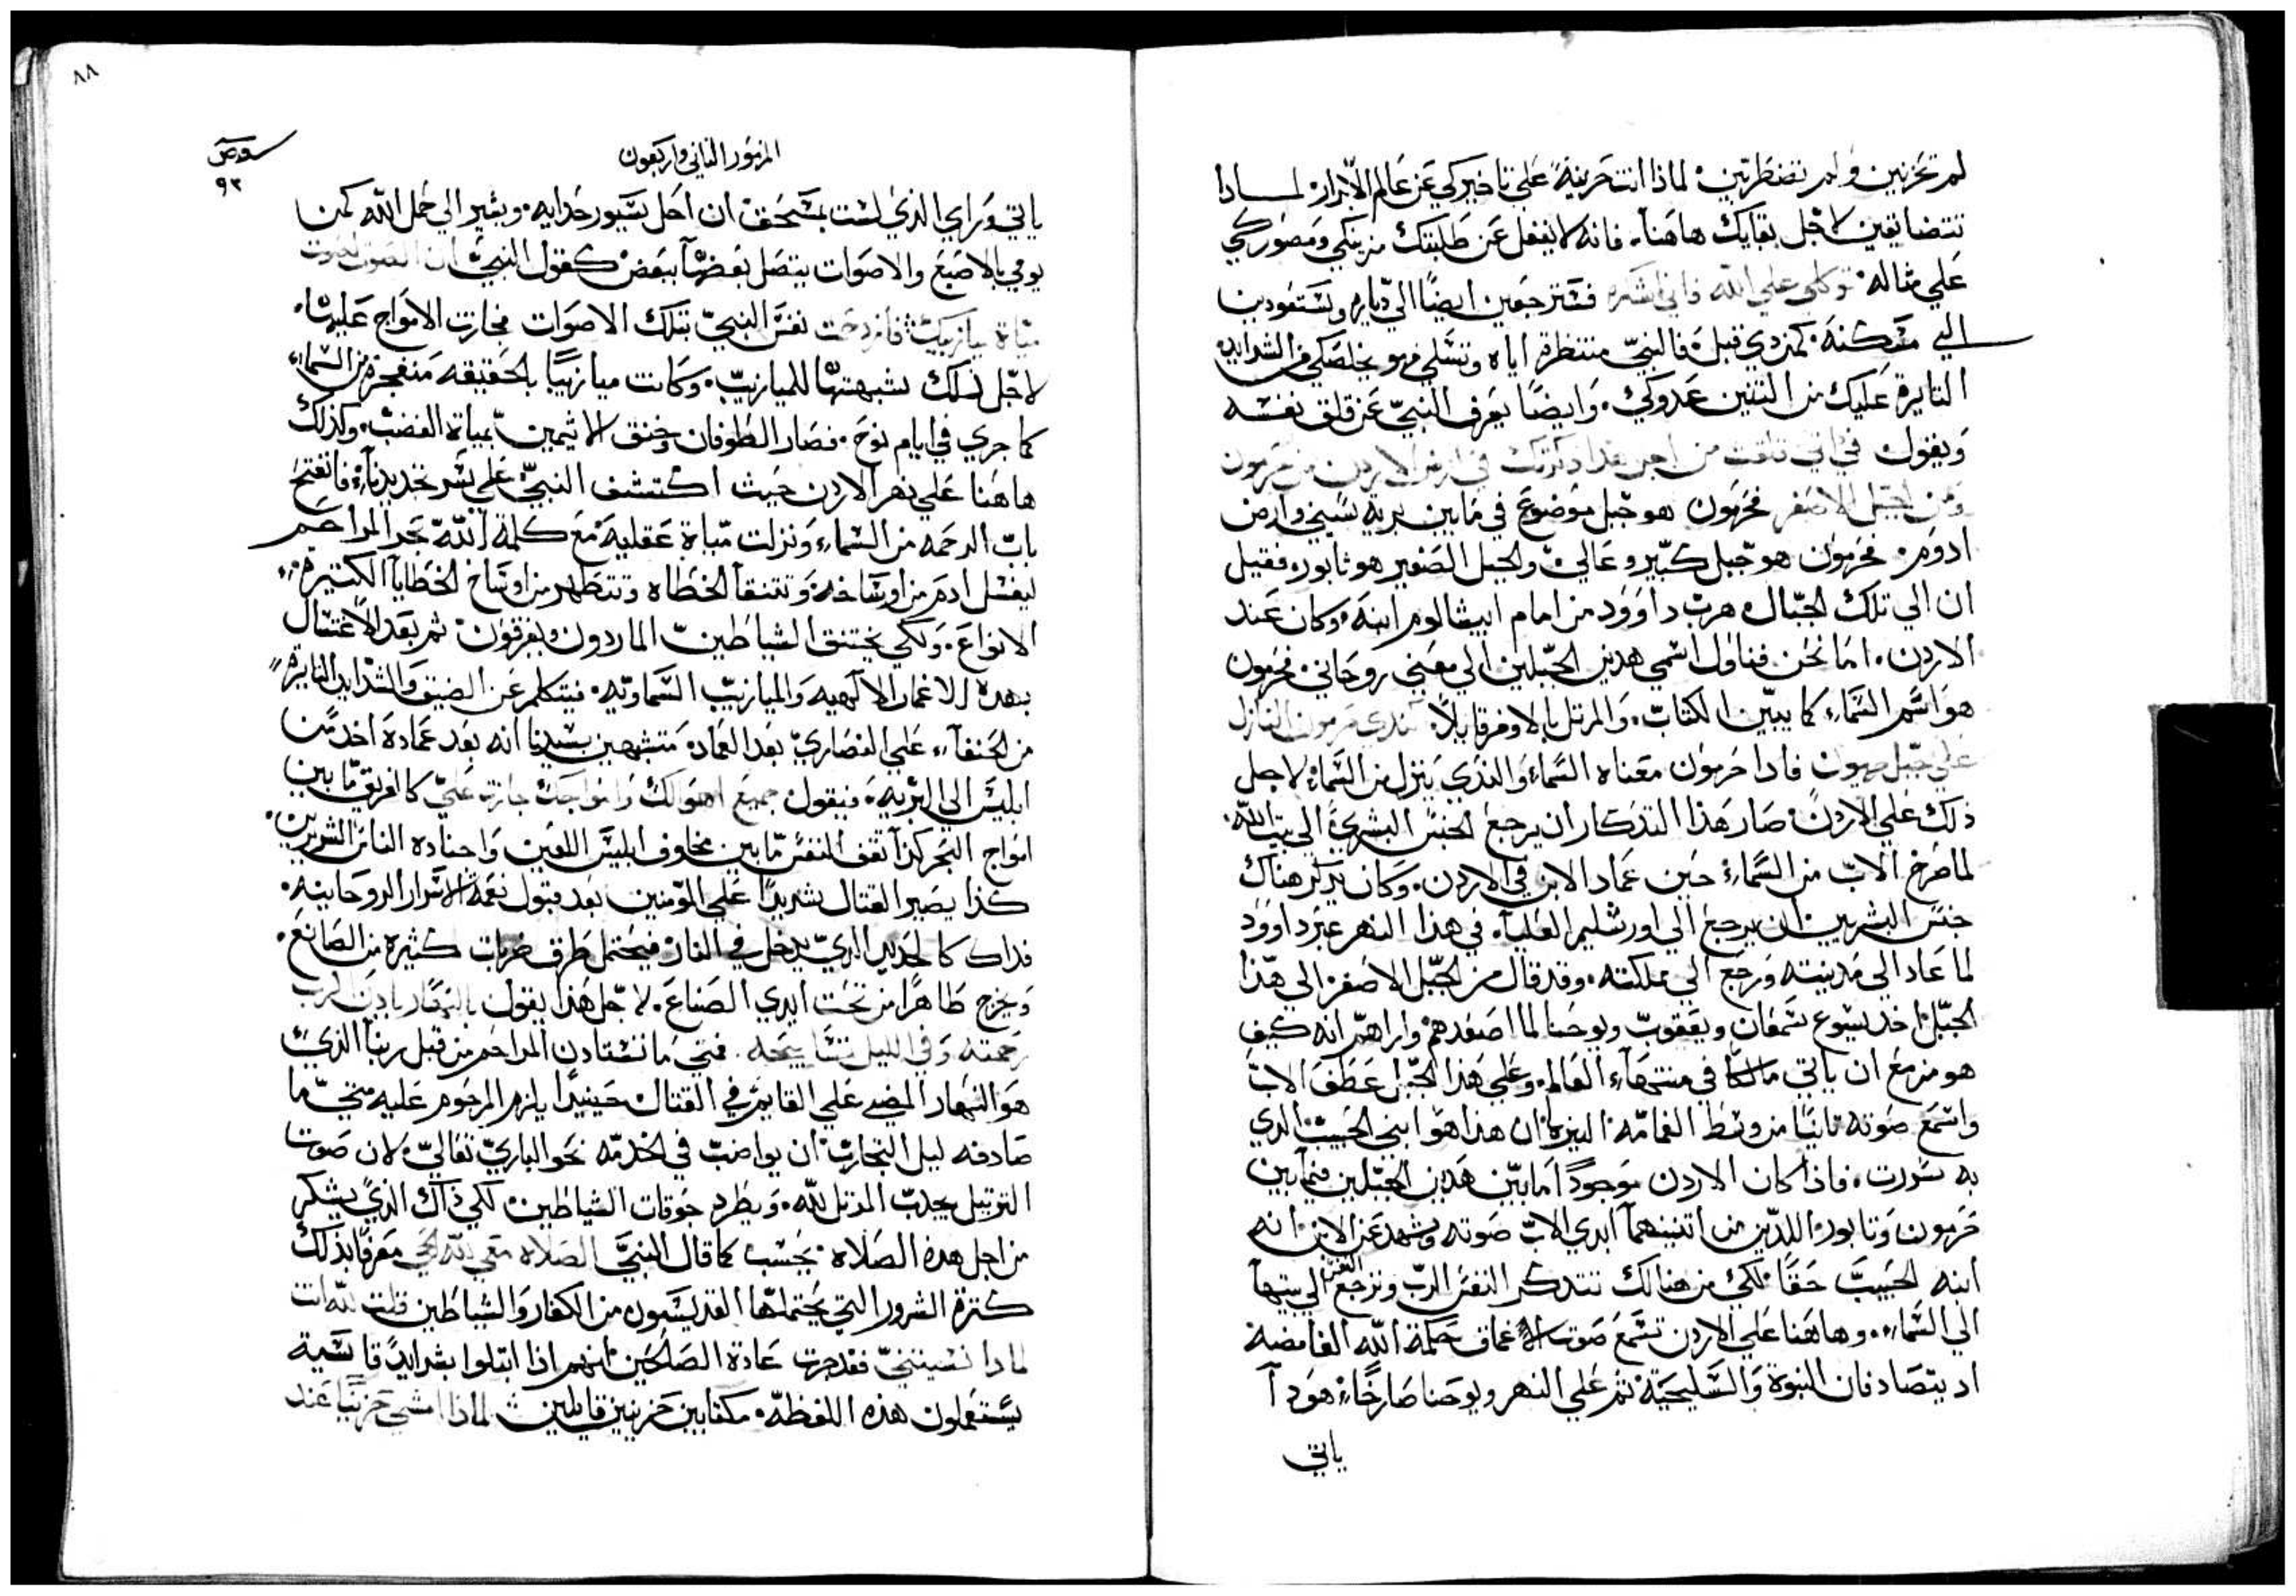 لم تحزنين ولم تضطربين لماذا انت حزينة علي تاخيركي عن عالم الابرار لماذا
تتضايقين لاجل بقايك هاهنا فانه لا يغفل عن طلبتك مزينكي ومصوركي
علي مثاله توكلي علي الله فاني اشكره فسترجعين ايضا الي دياره وتستعودين
الي مسكنه كمن دي قبل فالنبي منتظره اياه وتسلي فهو يخلصكي من الشدايد
الثايرة عليك من التنين عدوكي وايضا يعرف النبي عن قلق نفسه
ويقول في اني قلقت من اجل هذا ذكرتك في ارض الاردن من حرمون
ومن الجبل الاصغر فحرمون هو جبل موضوع في ما بين برية سيني وارض
ادوم فحرمون هو جبل كبير وعالي والجبل الصغير هو ثابور فقيل
ان الي تلك الجبال هرب داوود من امام ابيشالوم ابنه وكان عند
الاردن اما نحن فناول اسمي هدين الجبلين الي معني روحاني فحرمون
هو اسم السماء كما يبين الكتاب والمرتل بالاوفر قايلا كندي حرمون النازل
علي جبل صهيون فادا حرمون معناه السماء والندي ينزل من السماء لاجل
ذلك علي الاردن صار هذا التذكار ان يرجع الجنس البشري الي بيت الله
لما صرخ الاب من السماء حين عماد الابن في الاردن وكان يذكر هناك
جنس البشريين ان يرجع الي اورشليم العليا في هذا النهر عبر داوود
لما عاد الي مدينته ورجع الي مملكته وقد قال من الجبل الاصغر الي هذا
الجبل اخد يسوع شمعان ويعقوب ويوحنا لما اصعدهم واراهم انه كيف
هو مزمع ان ياتي مالكا في منتهاء العالم وعلي هذا الجبل عطف الاب
واسمع صوته ثانيا من وسط الغمامه النيره ان هذا هو ابني الحبيب الدي
به سررت فاذا كان الاردن موجودا ما بين هدين الجبلين فيما بين
حرمون وثابور اللدين من اتنينهما ابدي الاب صوته وشهد عن الابن انه
ابنه الحبيب حقا لكي من هنالك تتدكر النفس الرب وترجع النفس الي بيتها
الي السماء وهاهنا علي الاردن تسمع صوت الاعماق حكمة الله الغامضة
اد يتصادفان النبوة والسليحية ثم علي النهر ويوحنا صارخا هودا
ياتي
٨٨
المزمور الثاني واربعون
٩٣
ياتي وراي الذي لست بمستحق ان احل سيور حدايه ويشير الي حمل الله كمن
يومي بالاصبع والاصوات يتصل بعضها ببعض كقول النبي ان الصوت لصوت
مياة ميازيبك فازدحمت نفس النبي بتلك الاصوات فجازت الامواج عليها
لاجل ذلك شبهتها للميازيب وكانت ميازيبا بالحقيقه منفجرة من السماء
كما جري في ايام نوح فصار الطوفان وخنق الاثيمين بمياة الغضب وكذلك
هاهنا علي نهر الاردن حيث اكتشف النبي علي سر تجديدنا فانفتح
باب الرحمه من السماء ونزلت مياة عقلية مع كلمة الله بحر المراحم
ليغسل ادم من اوساخه وتتنقا الخطاه وتتطهر من اوساخ الخطايا الكتيرة
الانواع ولكي يختنق الشياطين الماردون ويغرقون ثم بعد الاغتسال
بهده الاغمار الالهيه والميازيب السماويه فيتكلم عن الضيق والشدايد الثايرة
من الحنفاء علي النصاري بعد العماد متشبهين بسيدنا انه بعد عماده اخد من
ابليس الي البريه فيقول جميع اهوالك وامواجك جازت علي كالغريق ما بين
امواج البحر كذا تقف النفس ما بين مخاوف ابليس اللعين واجناده الناس الشريرين
كذا يصير القتال شديدا علي المومنين بعد قبول نعمة الاسرار الروحانيه
فداك كالحديد الدي يدخل في النار فيحتمل طرق ضربات كثيره من الصانع
ويخرج طاهرا من تحت ايدي الصناع لاجل هذا يقول بالنهار يادن الرب
رحمته وفي الليل تسابيحه فمتي ما نستادن المراحم من قبل ربنا الذي
هو النهار المضي علي القايم في القتال حينيدا يلزم المرحوم عليه متي ما
صادفه ليل التجارب ان يواضب في الخدمه نحو الباري تعالي لان صوت
الترتيل يجدب المرتل لله ويطرد جوقات الشياطين لكي ذاك الذي يشكر
من اجل هده الصلاه يحسب كما قال النبي الصلاه معي لله الحي معرفا بذلك
كترة الشرور التي يحتملها القديسون من الكفار والشياطين قلت لله انت
لمادا نسيتني فقد جرت عادة الصالحين انهم اذا ابتلوا بشدايد قاسية
يستعملون هذه اللفظه مكتابين حزينين قايلين لماذا امشي حزينا عند